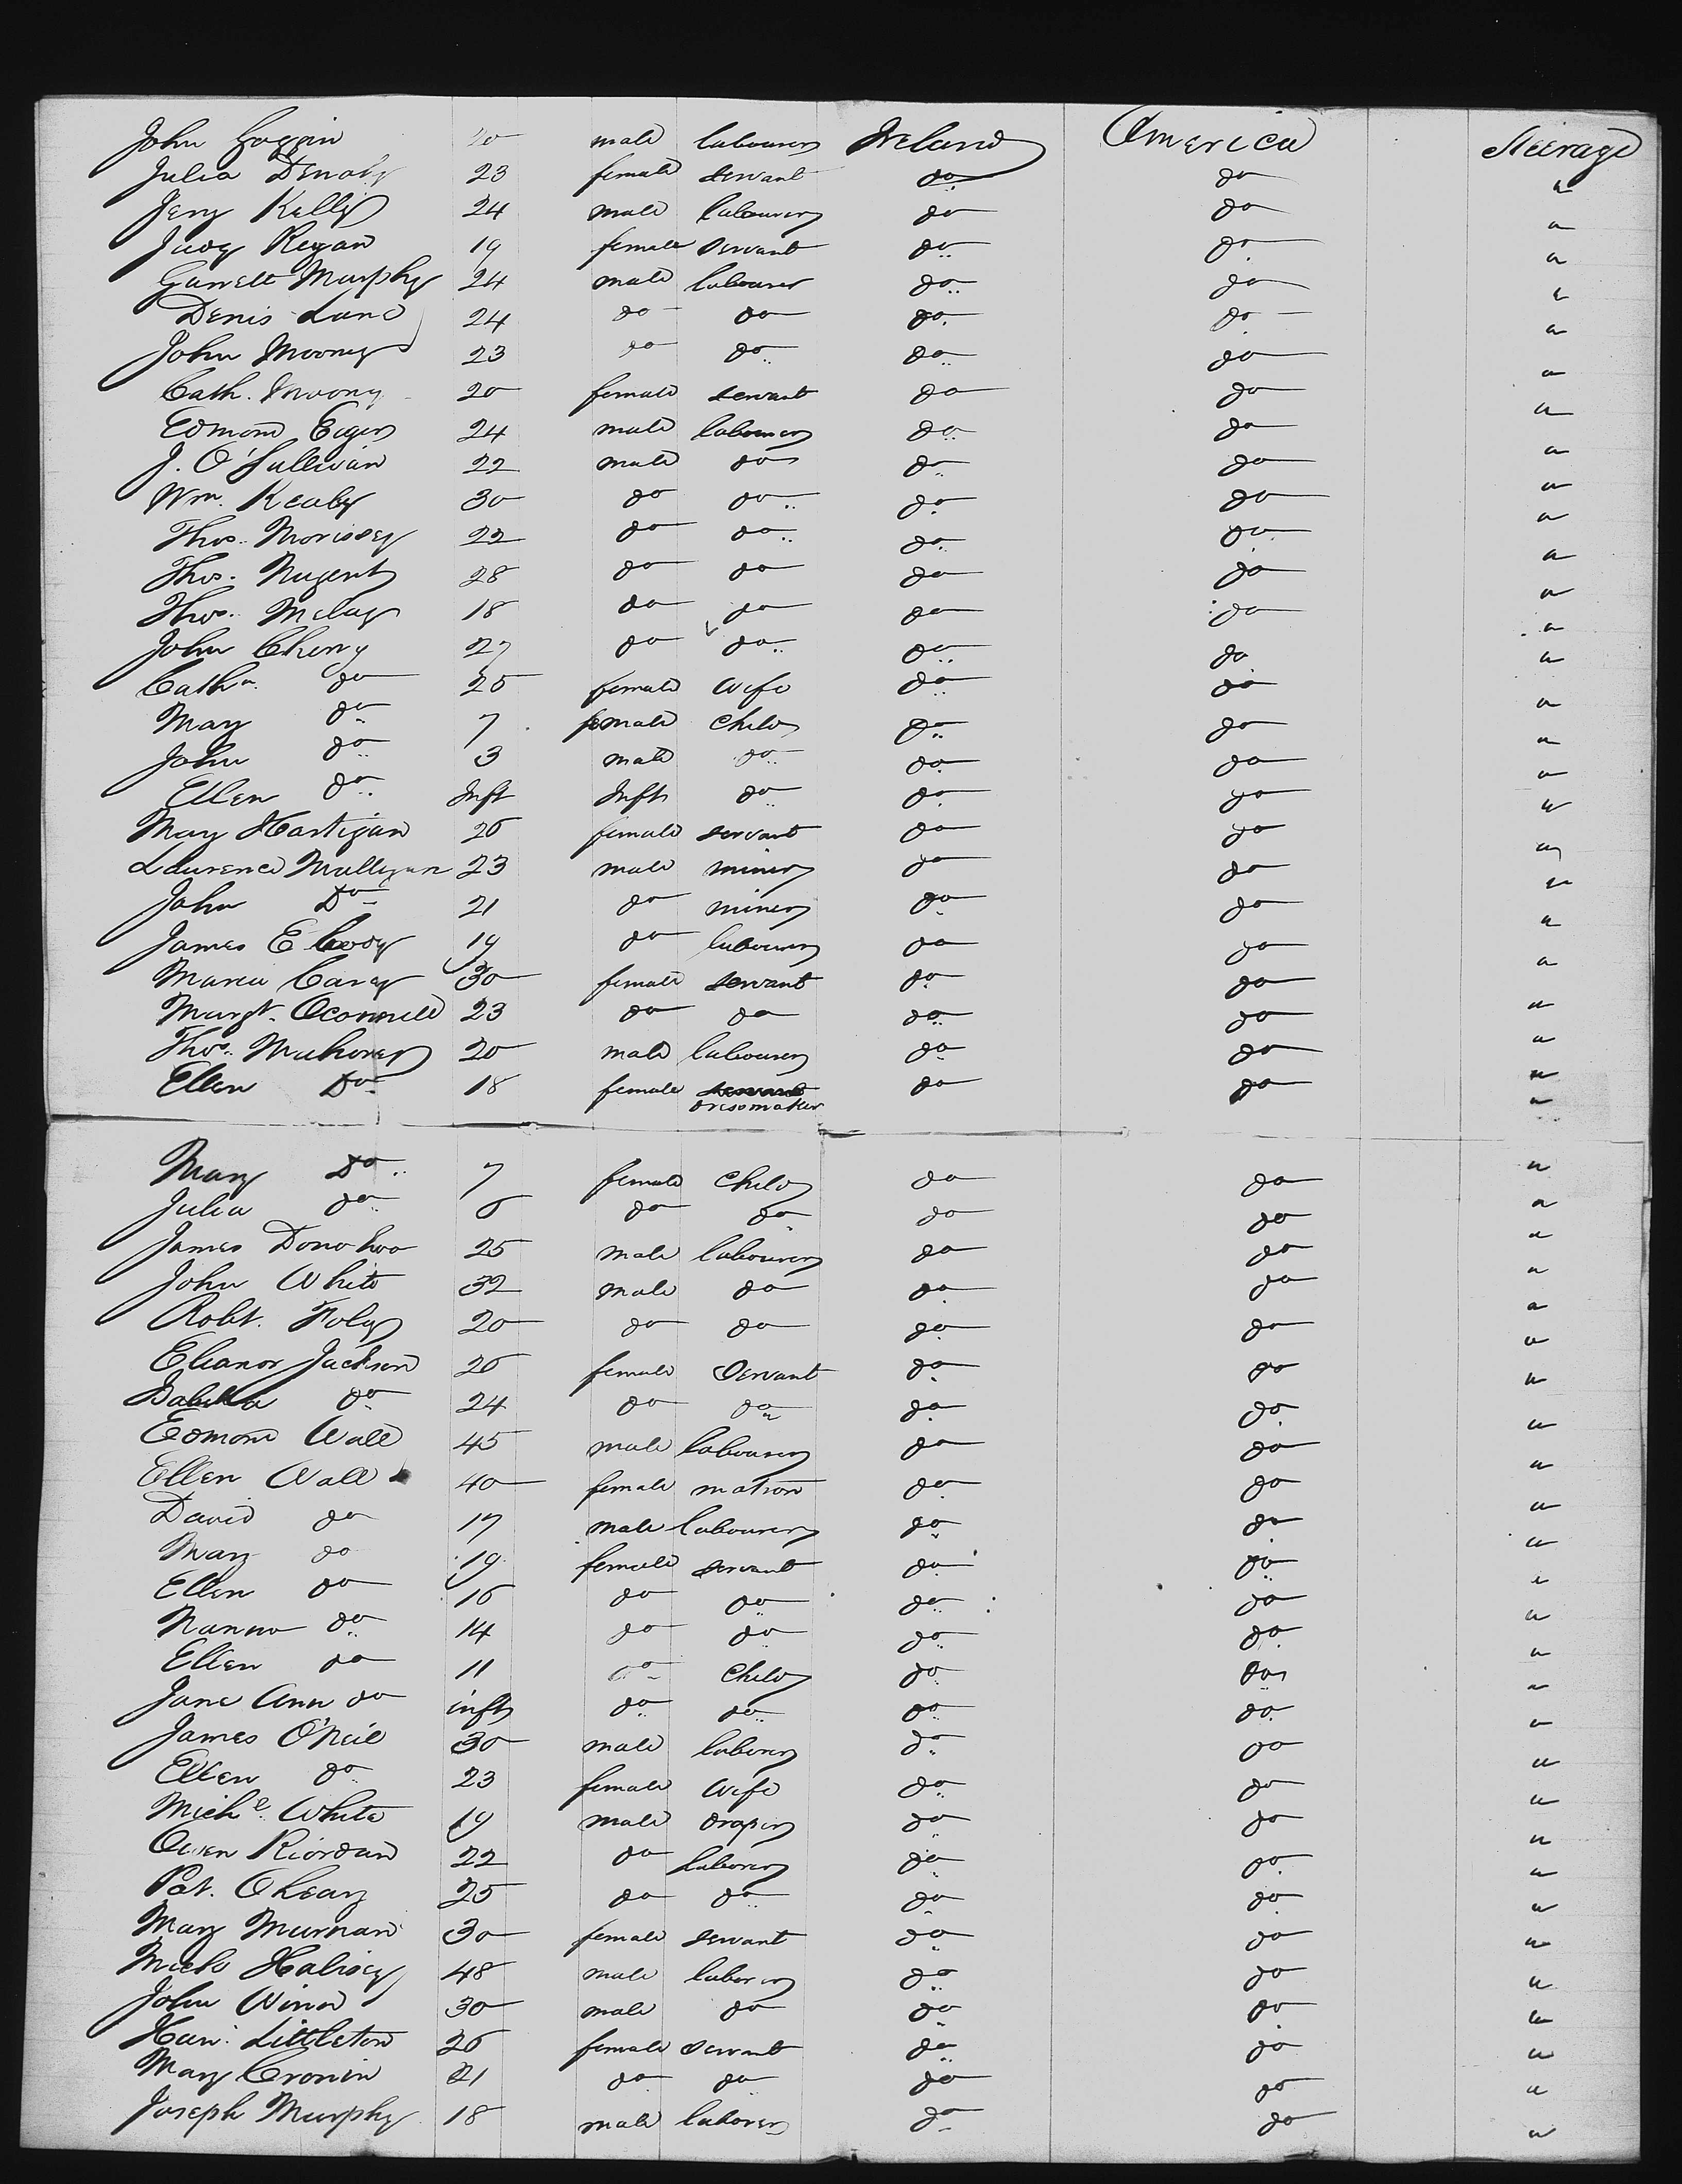 John Goggin 20 male labourer Ireland America Steerage
Julia Denahy 23 female servant do do "
Jery Kelly 24 male labourer do do "
Judy Regan 19 female servant do do "
Garrett Murphy 24 male labourer do do "
Denis Lane 24 do do do do "
John Moony 23 do do do do "
Cath. Moony 20 female servant do do "
Edmond 24 male labourer do do "
J. O'Sullivan 22 male do do do "
Wm. Kealy 30 do do do do "
Thos. Morissey 22 do do do do "
Thos. Nugent 28 do do do do "
Thos. 18 do do do do "
John Cherry 27 do do do do "
Cathn. do 25 female wife do do "
Mary do 7 female child do do "
John do 3 male do do do "
Ellen do Inft Inft do do do "
Mary Hartigan 26 female servant do do "
Laurence Mulligan 23 male miner do do "
John Do 21 do miner do do "
James E Cody 19 do labourer do do "
Maria Carey 30 female servant do do "
Margt. Oconnell 23 do do do do "
Thos. Mahoney 20 male labourer do do "
Ellen Do 18 female servant do do "
dressmaker "
Mary Do 7 female child do do "
Julia do 6 do do do do "
James Donohoo 25 male labourer do do "
John White 32 male do do do "
Robt. Foley 20 do do do do "
Eleanor Jackson 26 female servant do do "
Isabella do 24 do do do do "
Edmond Wall 45 male labourer do do "
Ellen Wall 40 female matron do do "
David do 17 male labourer do do "
Mary do 19 female servant do do "
Ellen do 16 do do do do "
Nanno do 14 do do do do "
Ellen do 11 do child do do "
Jane Ann do inft do do do do "
James O'Neil 30 male laborer do do "
Ellen do 23 female wife do do "
Michl. White 19 male draper do do "
Owen Riordan 22 do laborer do do "
Pat. Oleary 25 do do do do "
Mary Murnan 30 female servant do do "
Michl Halisey 48 male laborer do do "
John Winn 30 male do do do "
Han. Littleton 26 female servant do do "
Mary Cronin 21 do do do do "
Joseph Murphy 18 male laborer do do "